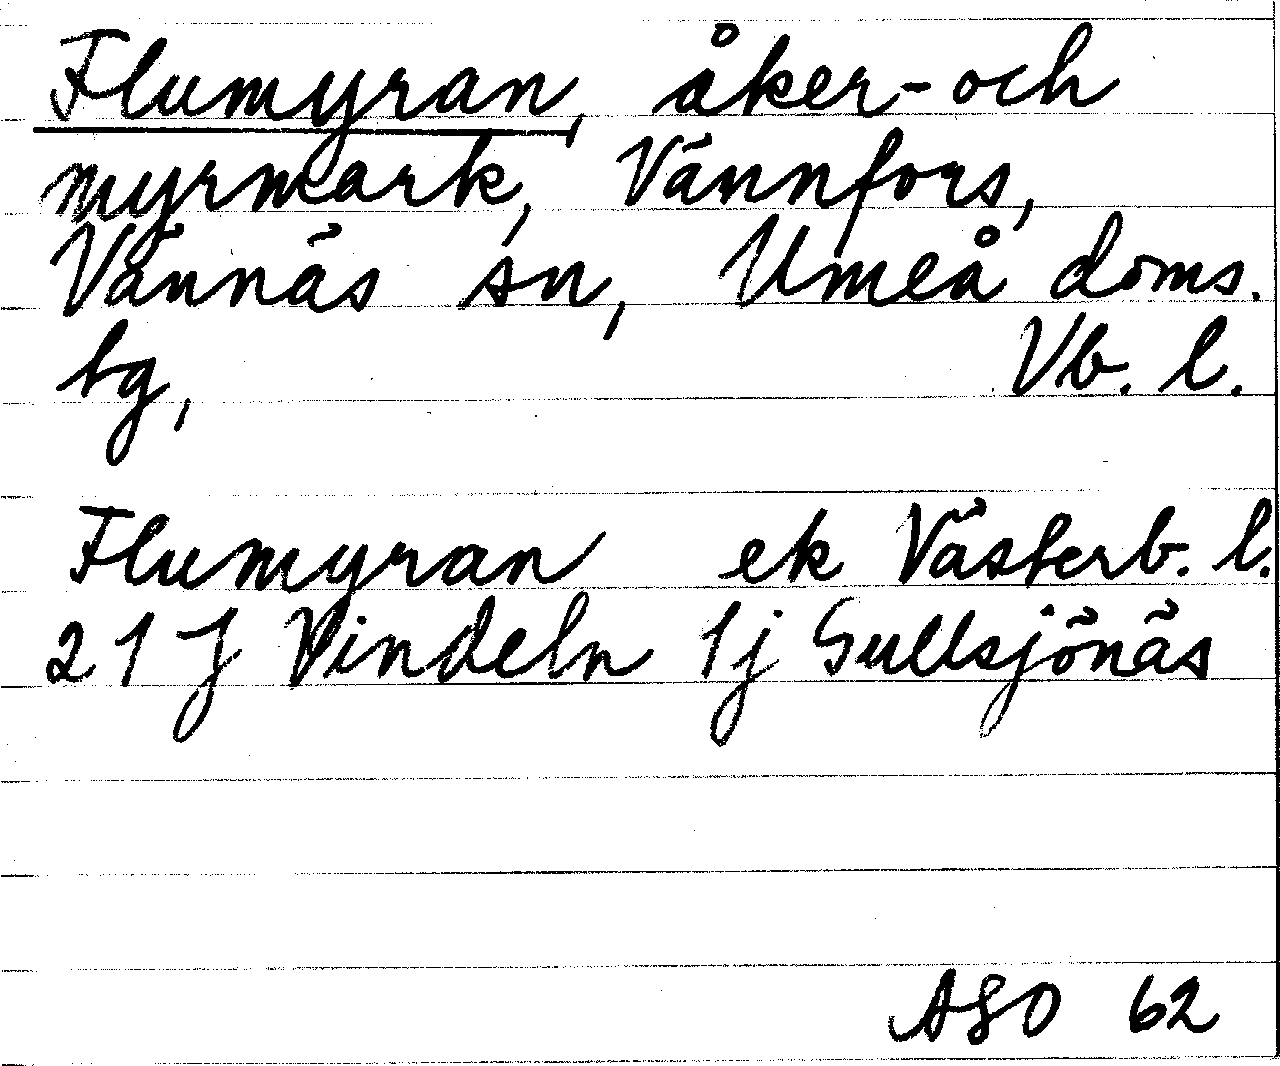 Flumyran, åker- och
myrmark, Vännfors,
Vännäs sn, Umeå doms.
tg, Vb. l.
Flumyran ek Västerb. l.
21 J Vindeln 1j Gullsjönäs
ASO 62